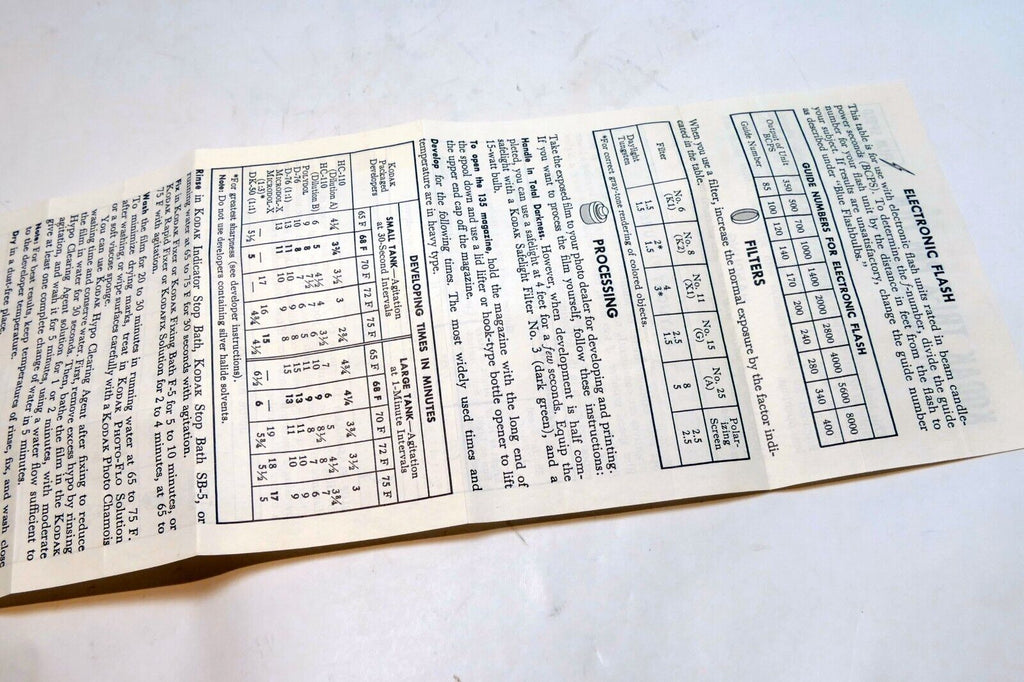 ELECTRONIC FLASH
This table is for use with electronic flash units rated in beam candle-
power seconds (BCPS). To determine the f-number, divide the guide
number for your flash unit by the distance in feet from the flash to
your subject. If results are unsatisfactory, change the guide number
as described under "Blue Flashbulbs."
GUIDE NUMBERS FOR ELECTRONIC FLASH
Output of Unit BCPS 350 500 700 1000 1400 2000 2800 4000 5600 8000
Guide Number 85 100 120 140 170 200 240 280 340 400
FILTERS
When you use a filter, increase the normal exposure by the factor indi-
cated in the table.
Filter No. 6 (K1) No. 8 (K2) No. 11 (X1) No. 15 (G) No. 25 (A) Polar-izing Screen
Daylight 1.5 2* 4 2.5 8 2.5
Tungsten 1.5 1.5 3* 1.5 5 2.5
*For correct gray-tone rendering of colored objects.
PROCESSING
Take the exposed film to your photo dealer for developing and printing.
If you want to process the film yourself, follow these instructions:
Handle in Total Darkness. However, when development is half com-
pleted, you can use a safelight at 4 feet for a few seconds. Equip the
safelight with a KODAK Safelight Filter No. 3 (dark green), and a
15-watt bulb.
To open the 135 magazine, hold the magazine with the long end of
the spool down and use a lid lifter or hook-type bottle opener to lift
the upper end cap off the magazine.
Develop for the following times. The most widely used times and
temperature are in heavy type.
DEVELOPING TIMES IN MINUTES
KODAK Packaged Developers
SMALL TANK—Agitation at 30-Second Intervals
LARGE TANK—Agitation at 1-Minute Intervals
65 F 68 F 70 F 72 F 75 F 65 F 68 F 70 F 72 F 75 F
HC-110 (Dilution A) 4¼ 3¾ 3½ 3 2¾ 4¾ 4¼ 3¾ 3½ 3
HC-110 (Dilution B)
POLYDOL
D-76
D-76 (1:1)
MICRODOL-X
MICRODOL-X (1:3)*
DK-50 (1:1)
*For greatest sharpness (see developer instructions).
Note: Do not use developers containing silver halide solvents.
Rinse in KODAK Indicator Stop Bath, KODAK Stop Bath SB-5, or
running water at 65 to 75 F for 30 seconds with agitation.
Fix in KODAK Fixer or KODAK Fixing Bath F-5 for 5 to 10 minutes, or
KODAK Rapid Fixer or KODAFIX Solution for 2 to 4 minutes, at 65 to
75 F with agitation.
Wash the film for 20 to 30 minutes in running water at 65 to 75 F.
To minimize drying marks, treat in KODAK PHOTO-FLO Solution
after washing, or wipe surfaces carefully with a KODAK Photo Chamois
or a soft viscose sponge.
You can use KODAK Hypo Clearing Agent after fixing to reduce
washing time and conserve water. First, remove excess hypo by rinsing
the film in water for 30 seconds. Then, bathe the film in the KODAK
Hypo Clearing Agent solution for 1 or 2 minutes, with moderate
agitation, and wash it for 5 minutes, using a water flow sufficient to
give at least one complete change of water in 5 minutes.
Note: For best results, keep temperatures of rinse, fix, and wash close
to the developer temperature.
Dry in a dust-free place.